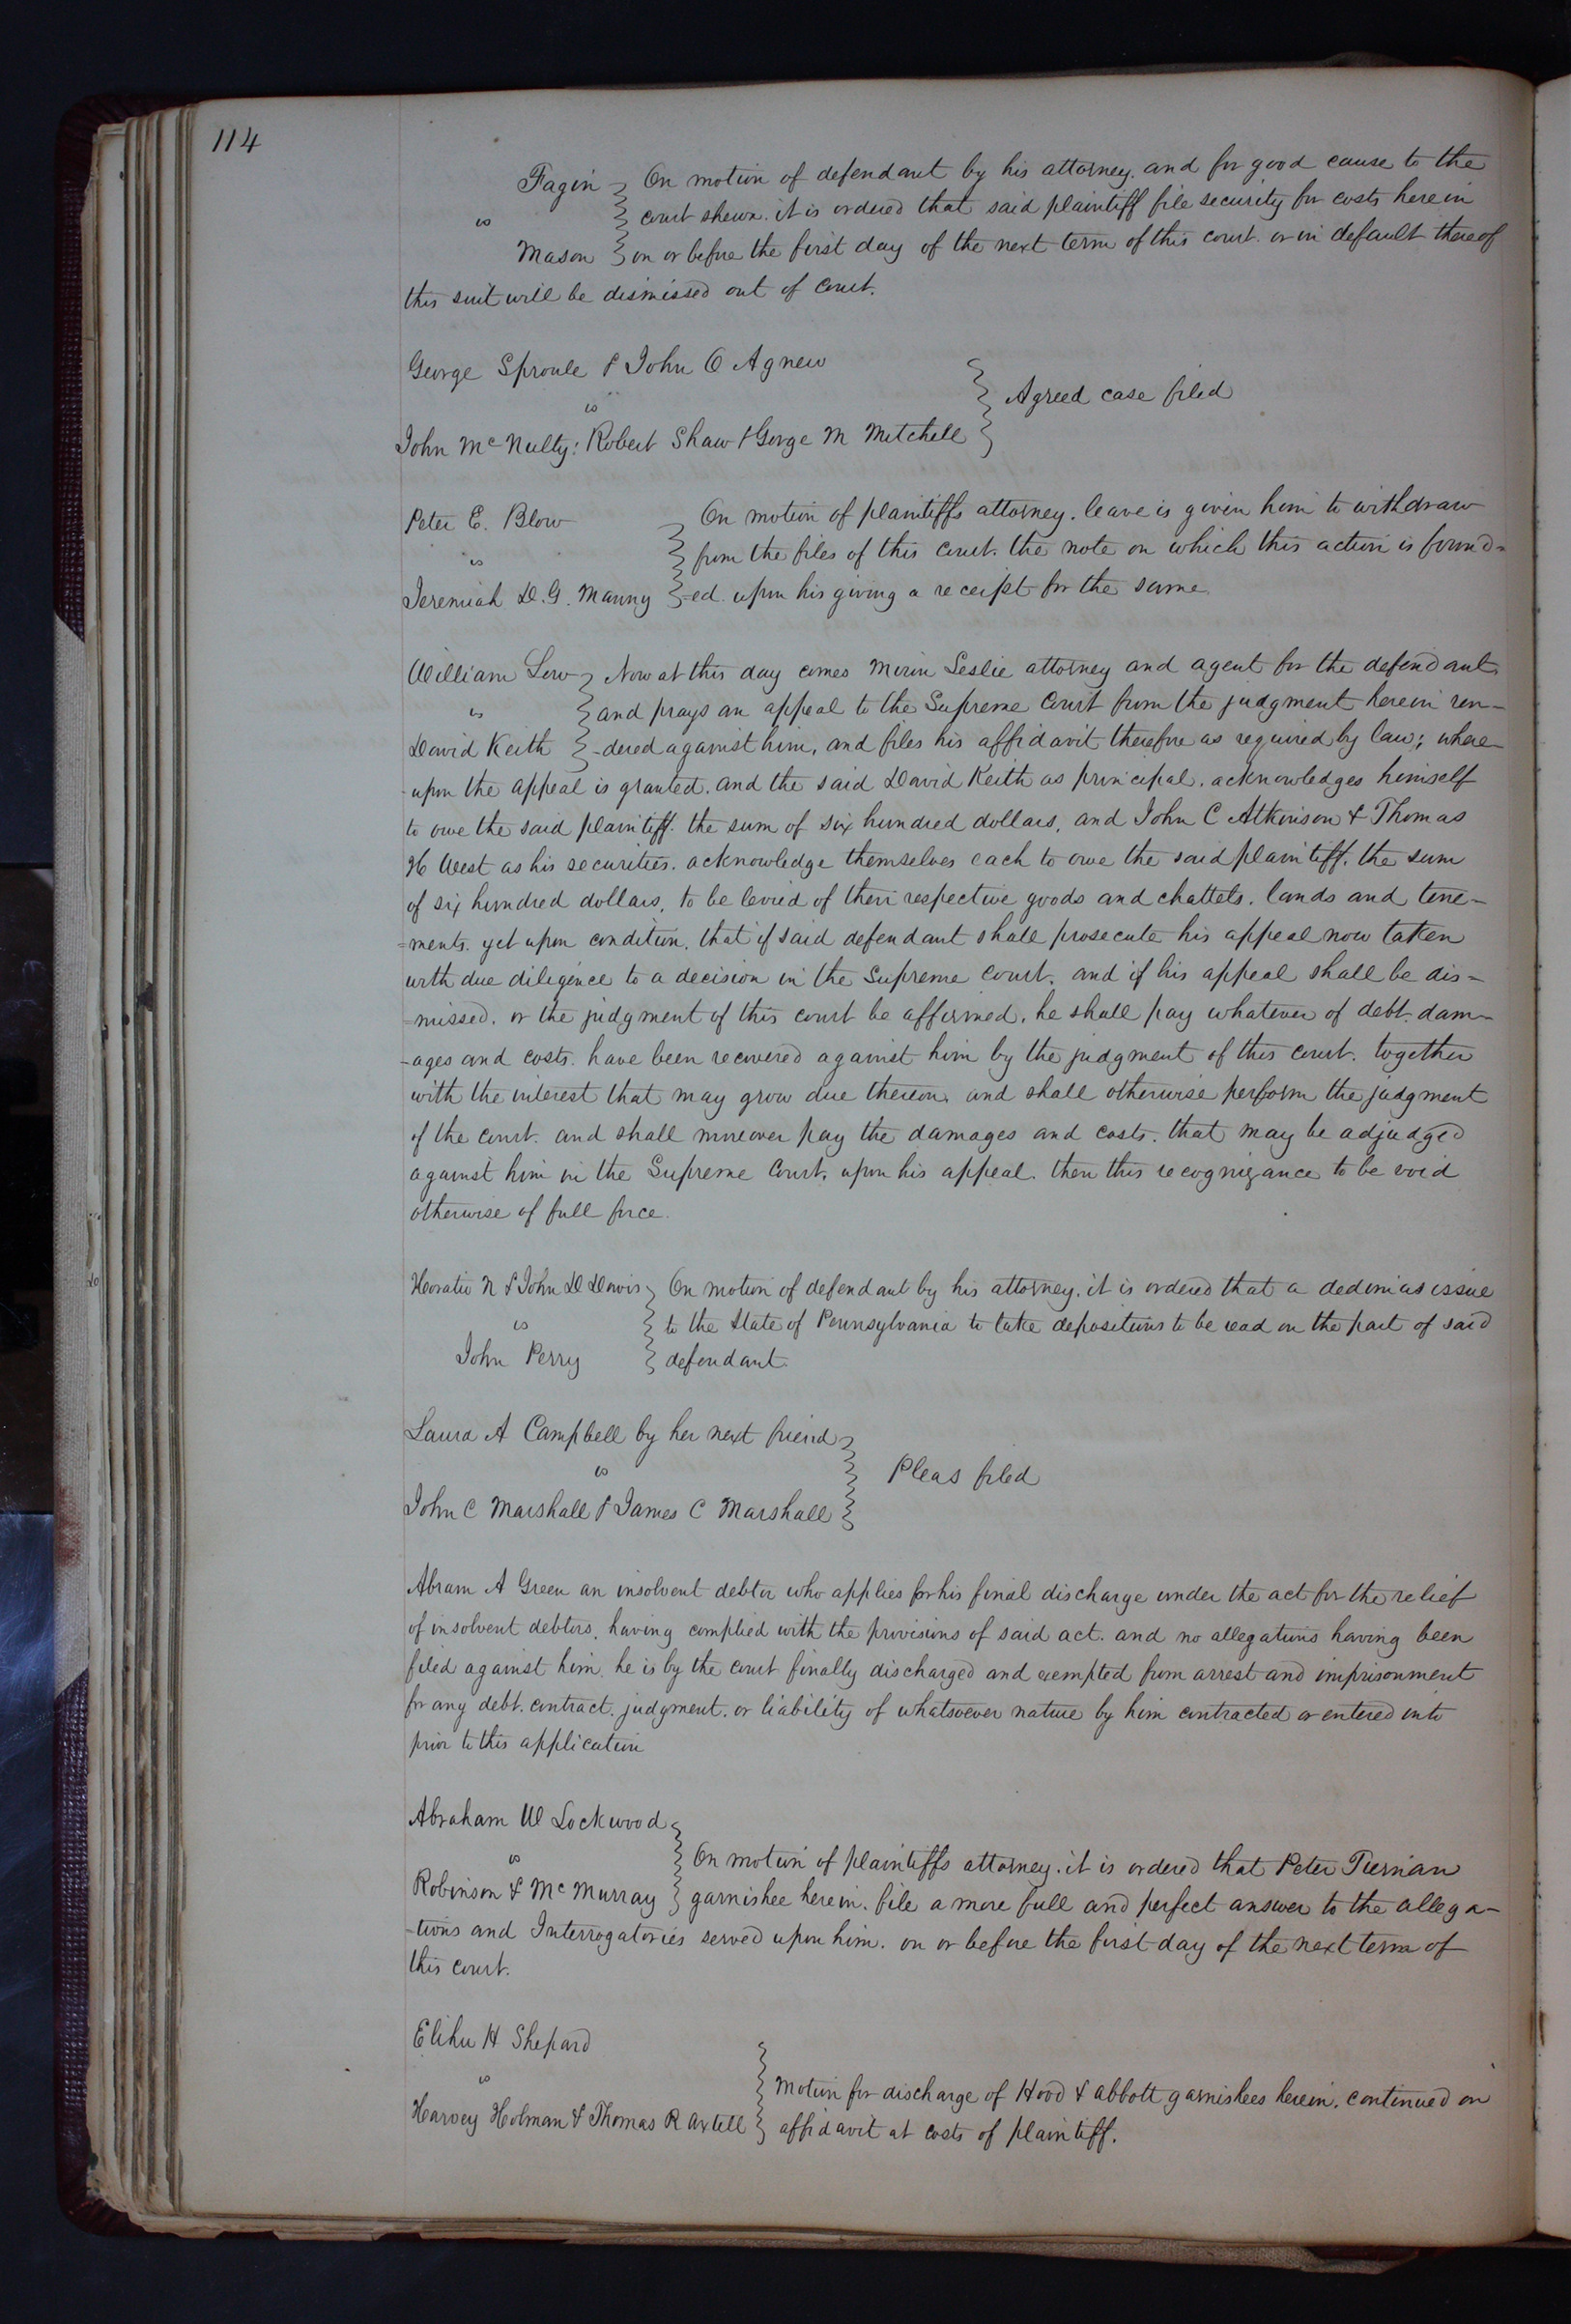 114
Fagin On motion of defendant by his attorney. and for good cause to the
vs court shewn. it is ordered that said plaintiff file security for costs herein
Mason on or before the first day of the next term of this court. or in default thereof
this suit will be dismissed out of court.
George Sproule & John O Agnew
vs Agreed case filed
John Mc Nulty: Robert Shaw & George M Mitchell
Peter E. Blow On motion of plaintiffs attorney. leave is given him to withdraw
vs from the files of this court. the note on which this action is found=
Jeremiah D. G. Manny -ed. upon his giving a receipt for the same.
William Low Now at this day comes Miron Leslie attorney and agent for the defendant
vs and prays an appeal to the Supreme Court from the judgment herein ren-
David Keith -dered against him, and files his affidavit therefore as required by law; where-
-upon the appeal is granted. and the said David Keith as principal. acknowledges himself
to owe the said plaintiff. the sum of six hundred dollars, and John C Atkinson & Thomas
H West as his securities. acknowledge themselves each to owe the said plaintiff. the sum
of six hundred dollars, to be levied of their respective goods and chattels. lands and tene-
=ments. yet upon condition. that if said defendant shall prosecute his appeal now taken
with due diligence to a decision in the Supreme Court. and if his appeal shall be dis=
=missed. or the judgment of this court be affirmed. he shall pay whatever of debt. dam-
-ages and costs. have been recovered against him by the judgment of this court. together
with the interest that may grow due thereon. and shall otherwise perform the judgment
of the court. and shall moreover pay the damages and costs. that may be adjudged
against him in the Supreme Court. upon his appeal. then this recognizance to be void
otherwise of full force.
Horatio N & John D Davis On motion of defendant by his attorney. it is ordered that a dedimus issue
vs to the State of Pennsylvania to take depositions to be read on the part of said
John Perry defendant.
Laura A Campbell by her next friend
vs Pleas filed
John C Marshall & James C Marshall
Abram A Green an insolvent debtor who applies for his final discharge under the act for the relief
of insolvent debtors, having complied with the provisions of said act. and no allegations having been
filed against him. he is by the court finally discharged and exempted from arrest and imprisonment
for any debt. contract. judgment. or liability of whatsoever nature by him contracted or entered into
prior to this application
Abraham W Lockwood
vs On motion of plaintiffs attorney. it is ordered that Peter Tiernan
Robinson & Mc Murray garnishee herein. file a more full and perfect answer to the allega-
-tions and Interrogatories served upon him. on or before the first day of the next term of
this court.
Elihu H Shepard
vs Motion for discharge of Hood & Abbott garnishees herein. continued on
Harvey Holman & Thomas R Axtell affidavit at costs of plaintiff.